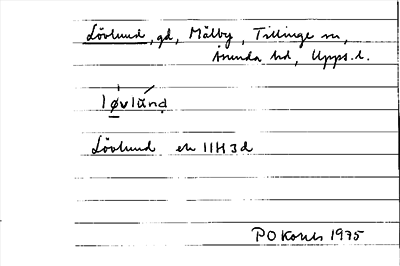 Lövlund, gd, Mälby, Tillinge sn,
Åsunda hd, Upps. l.
løvlund
Lövlund ek 11H3d
PO Konts 1975